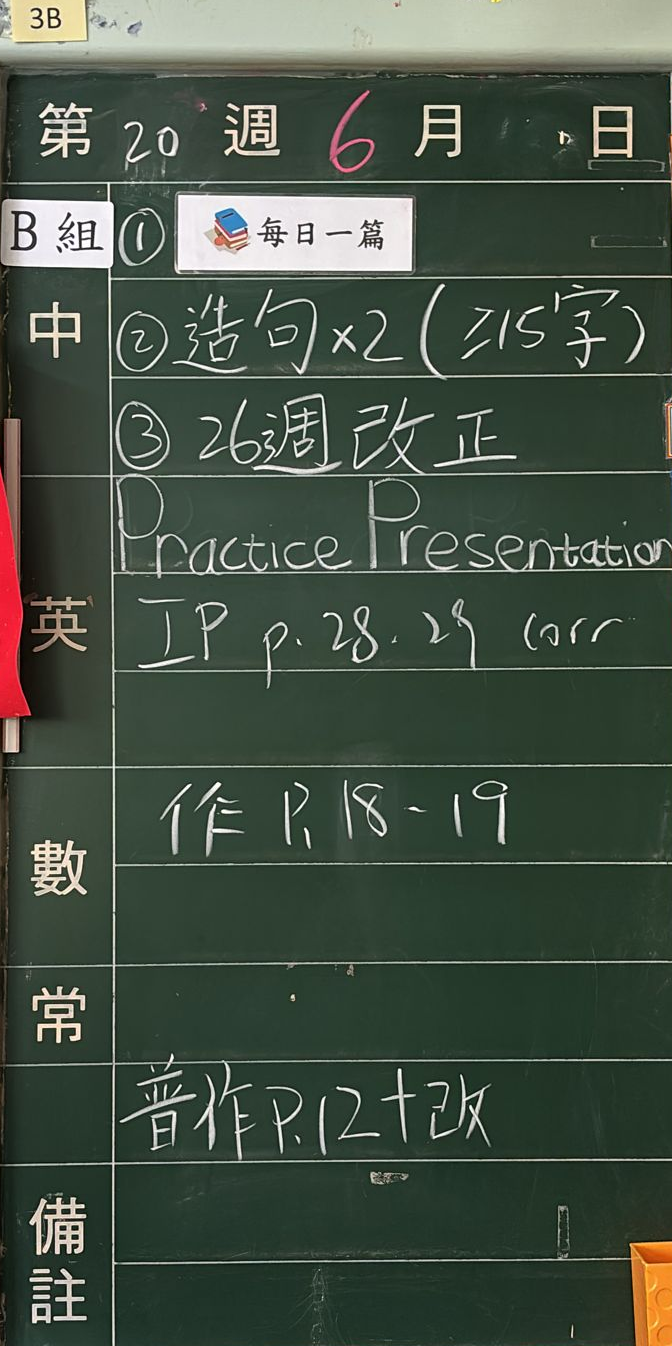 3B
第 20 週 6 月 日
B 組 ① 每日一篇
中 ② 造句×2(≥15字)
③ 26週改正
Practice Presentation
英 IP p. 28. 29 corr
作 P. 18-19
數
常
普作 P.12+改
備
註